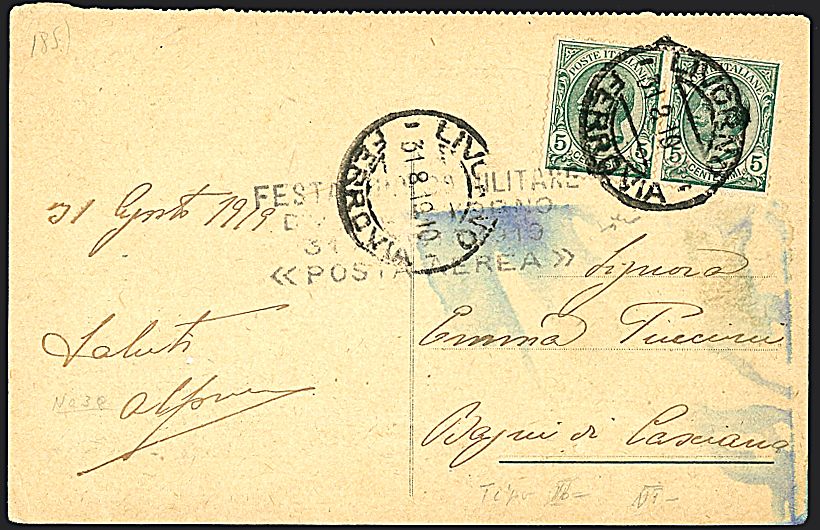 185)
POSTE ITALIANE
5 CENTESIMI 5
ITALIANE
5 CENTESIMI 5
LIVORNO
31.8.19
FERROVIA
LIVORNO
31.8.19.10
FERROVIA
FESTA MILITARE
DI LIVORNO
31 1919
« POSTA AEREA »
31 Agosto 1919
Saluti
Signora
Emma Puccini
Bagni di Casciana
Tipo